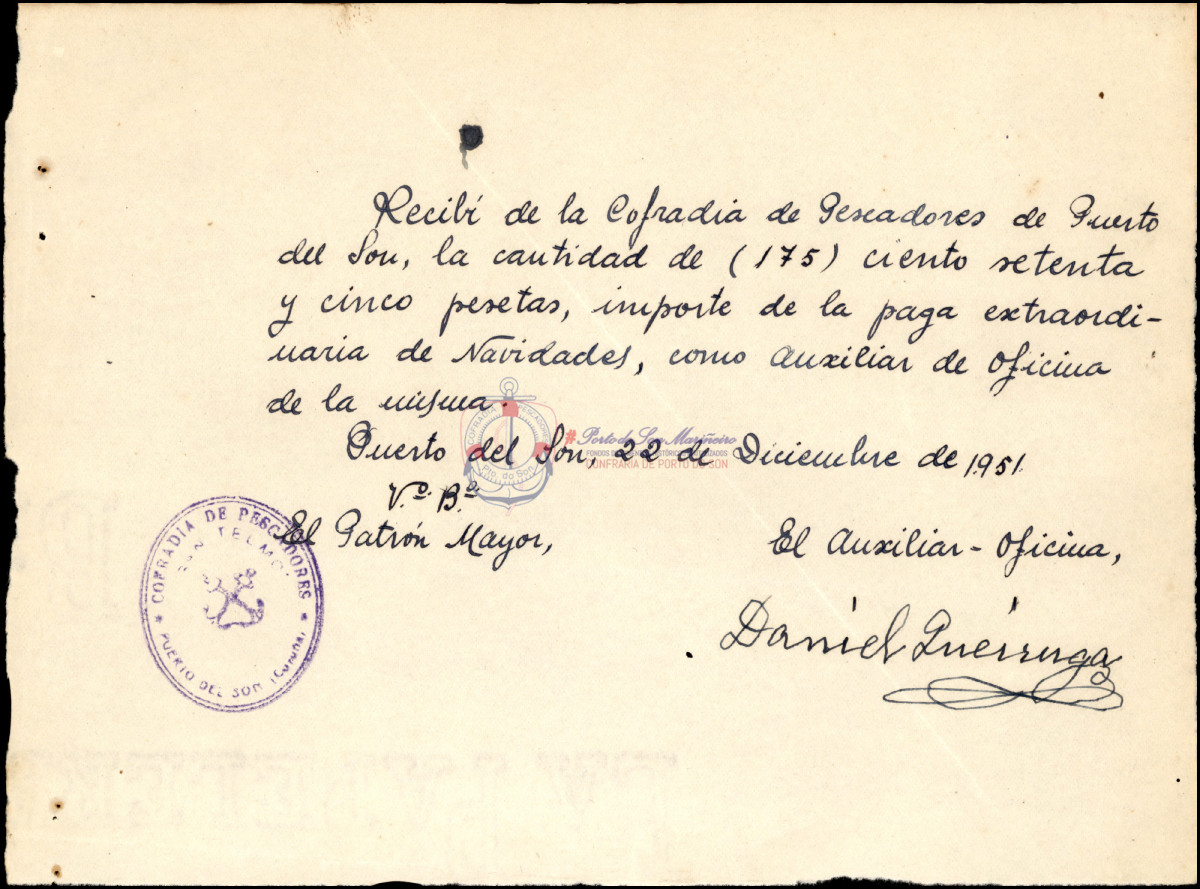 Recibí de la Cofradia de Pescadores de Puerto
del Son, la cantidad de (175) ciento setenta
y cinco pesetas, importe de la paga extraordi-
naria de Navidades, como Auxiliar de Oficina
de la misma.
Puerto del Son, 22 de Diciembre de 1951.
V.º B.º
El Patrón Mayor,
El Auxiliar-Oficina,
Daniel
COFRADIA DE PESCADORES
SAN TELMO
PUERTO DEL SON (Coruña)
COFRADIA PESCADORES
Pto. do Son
#Porto do Son Mariñeiro
CONFRARIA DE PORTO DO SON